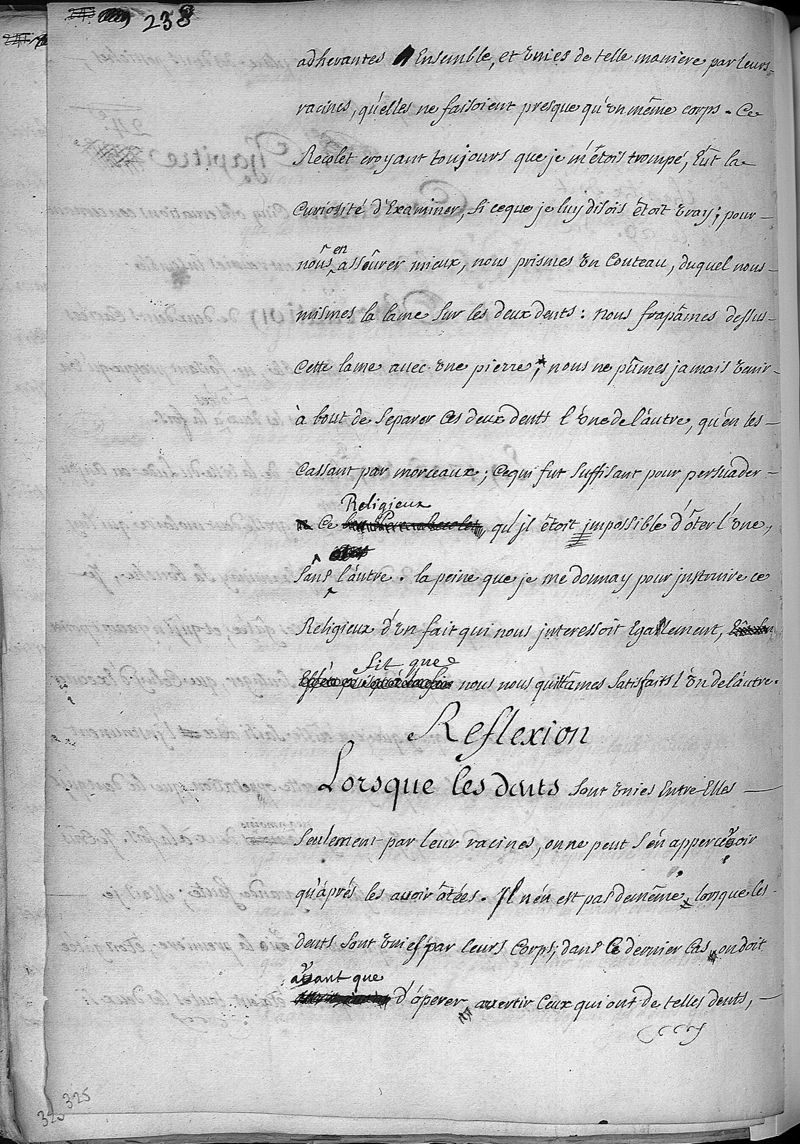 238
adherantes Ensemble, et unies de telle maniere par leurs
racines, qu'elles ne faisoient presque qu'un même corps. Ce
Recolet croyant toujours que je m'étois trompé, Eût la
Curiosité d'Examiner, si ceque je luy disois étoit vray; pour
nous en assêurer mieux, nous prismes un Couteau, duquel nous
mismes la lame sur les deux dents: nous frapâmes dessus
Cette lame avec une pierre; nous ne pûmes jamais venir
à bout de separer Ces deux dents l'une de l'autre, qu'en les
Cassant par morceaux; Cequi fut suffisant pour persuader
Ce Religieux qu'jl étoit jmpossible d'ôter l'une,
sans l'autre. la peine que je me donnay pour jnstruire ce
Religieux d'un fait qui nous jnteressoit Egallement,
fit que nous nous quittâmes satisfaits l'un de l'autre.
Reflexion
Lorsque les dents sont unies Entre Elles
seulement par leur racines, on ne peut s'en appercevoir
qu'aprés les avoir ôtées. Jl n'en est pas demême, lorsque les
dents sont unies par leurs Corps; dans Ce dernier Cas, on doit
avant que d'óperer, avertir Ceux qui ont de telles dents,
325
325